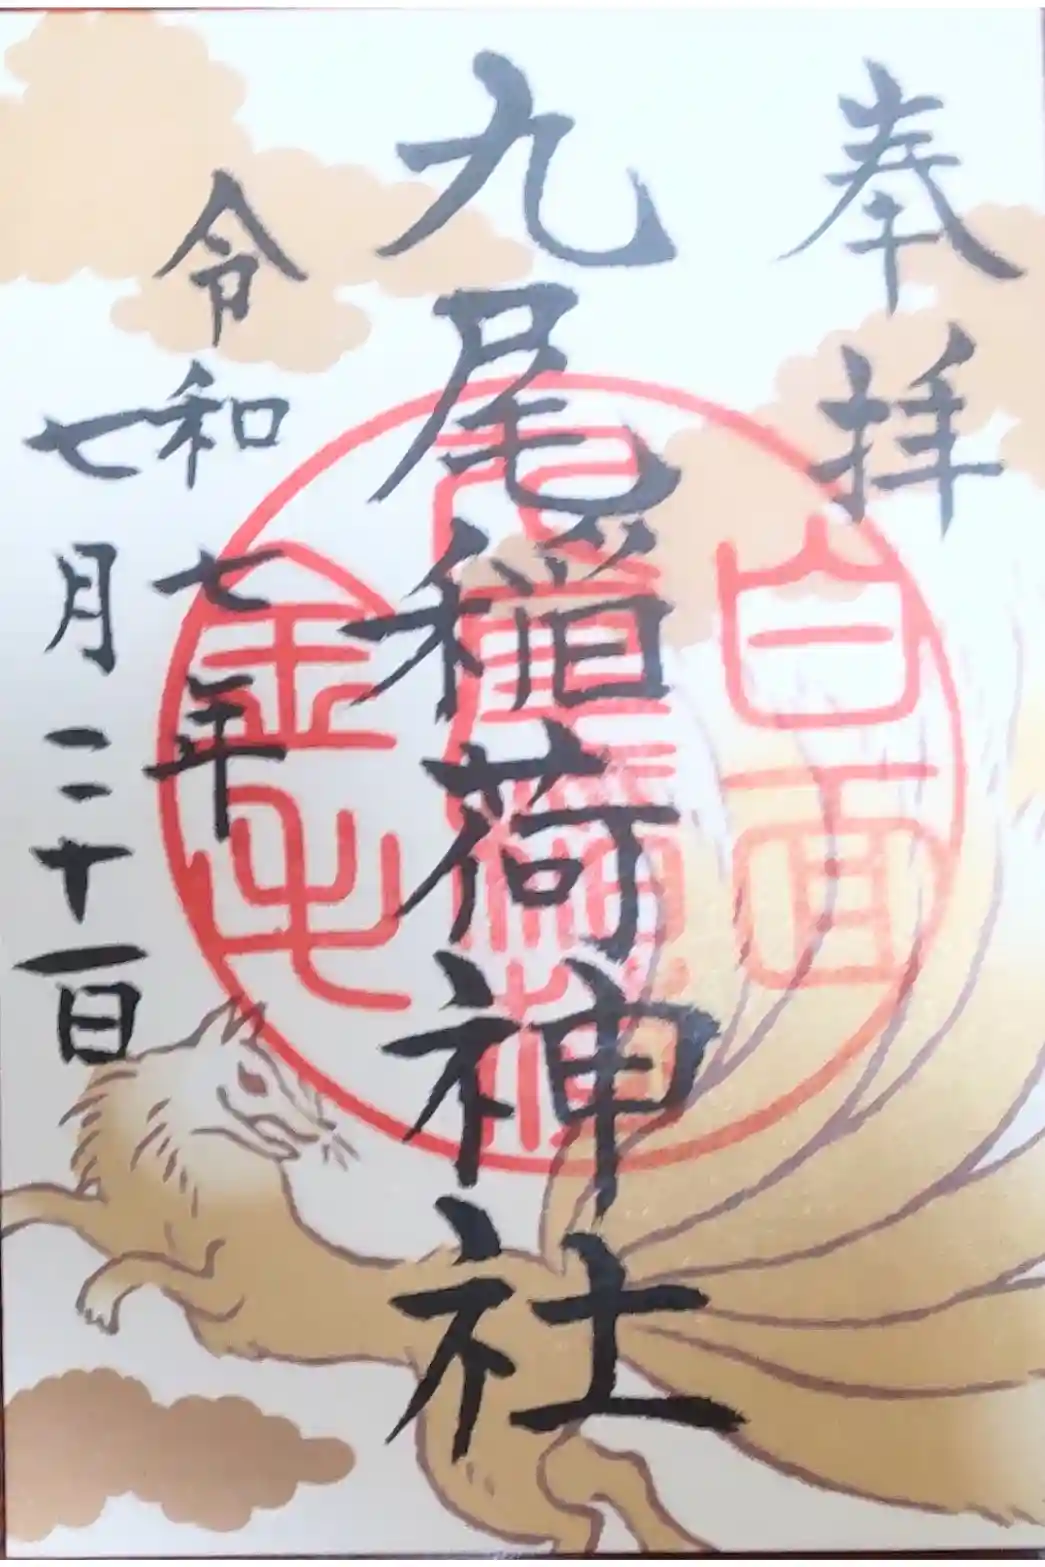 奉拝
九尾稲荷神社
令和七年
七月二十一日
白面
金毛